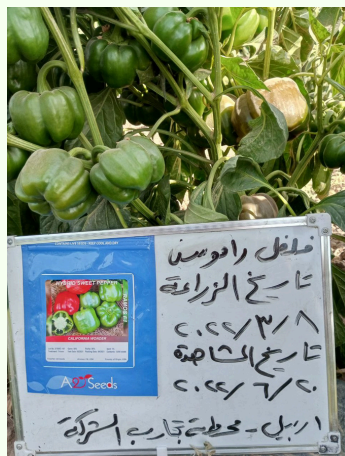 HYBRID SWEET PEPPER
CALIFORNIA WONDER
Seeds
فلفل راموس
تاريخ الزراعة
٢٠٢٢/٣/٨
تاريخ المشاهدة
٢٠٢٢/٦/٢٠
اربيل - محطة تجارب الشركة